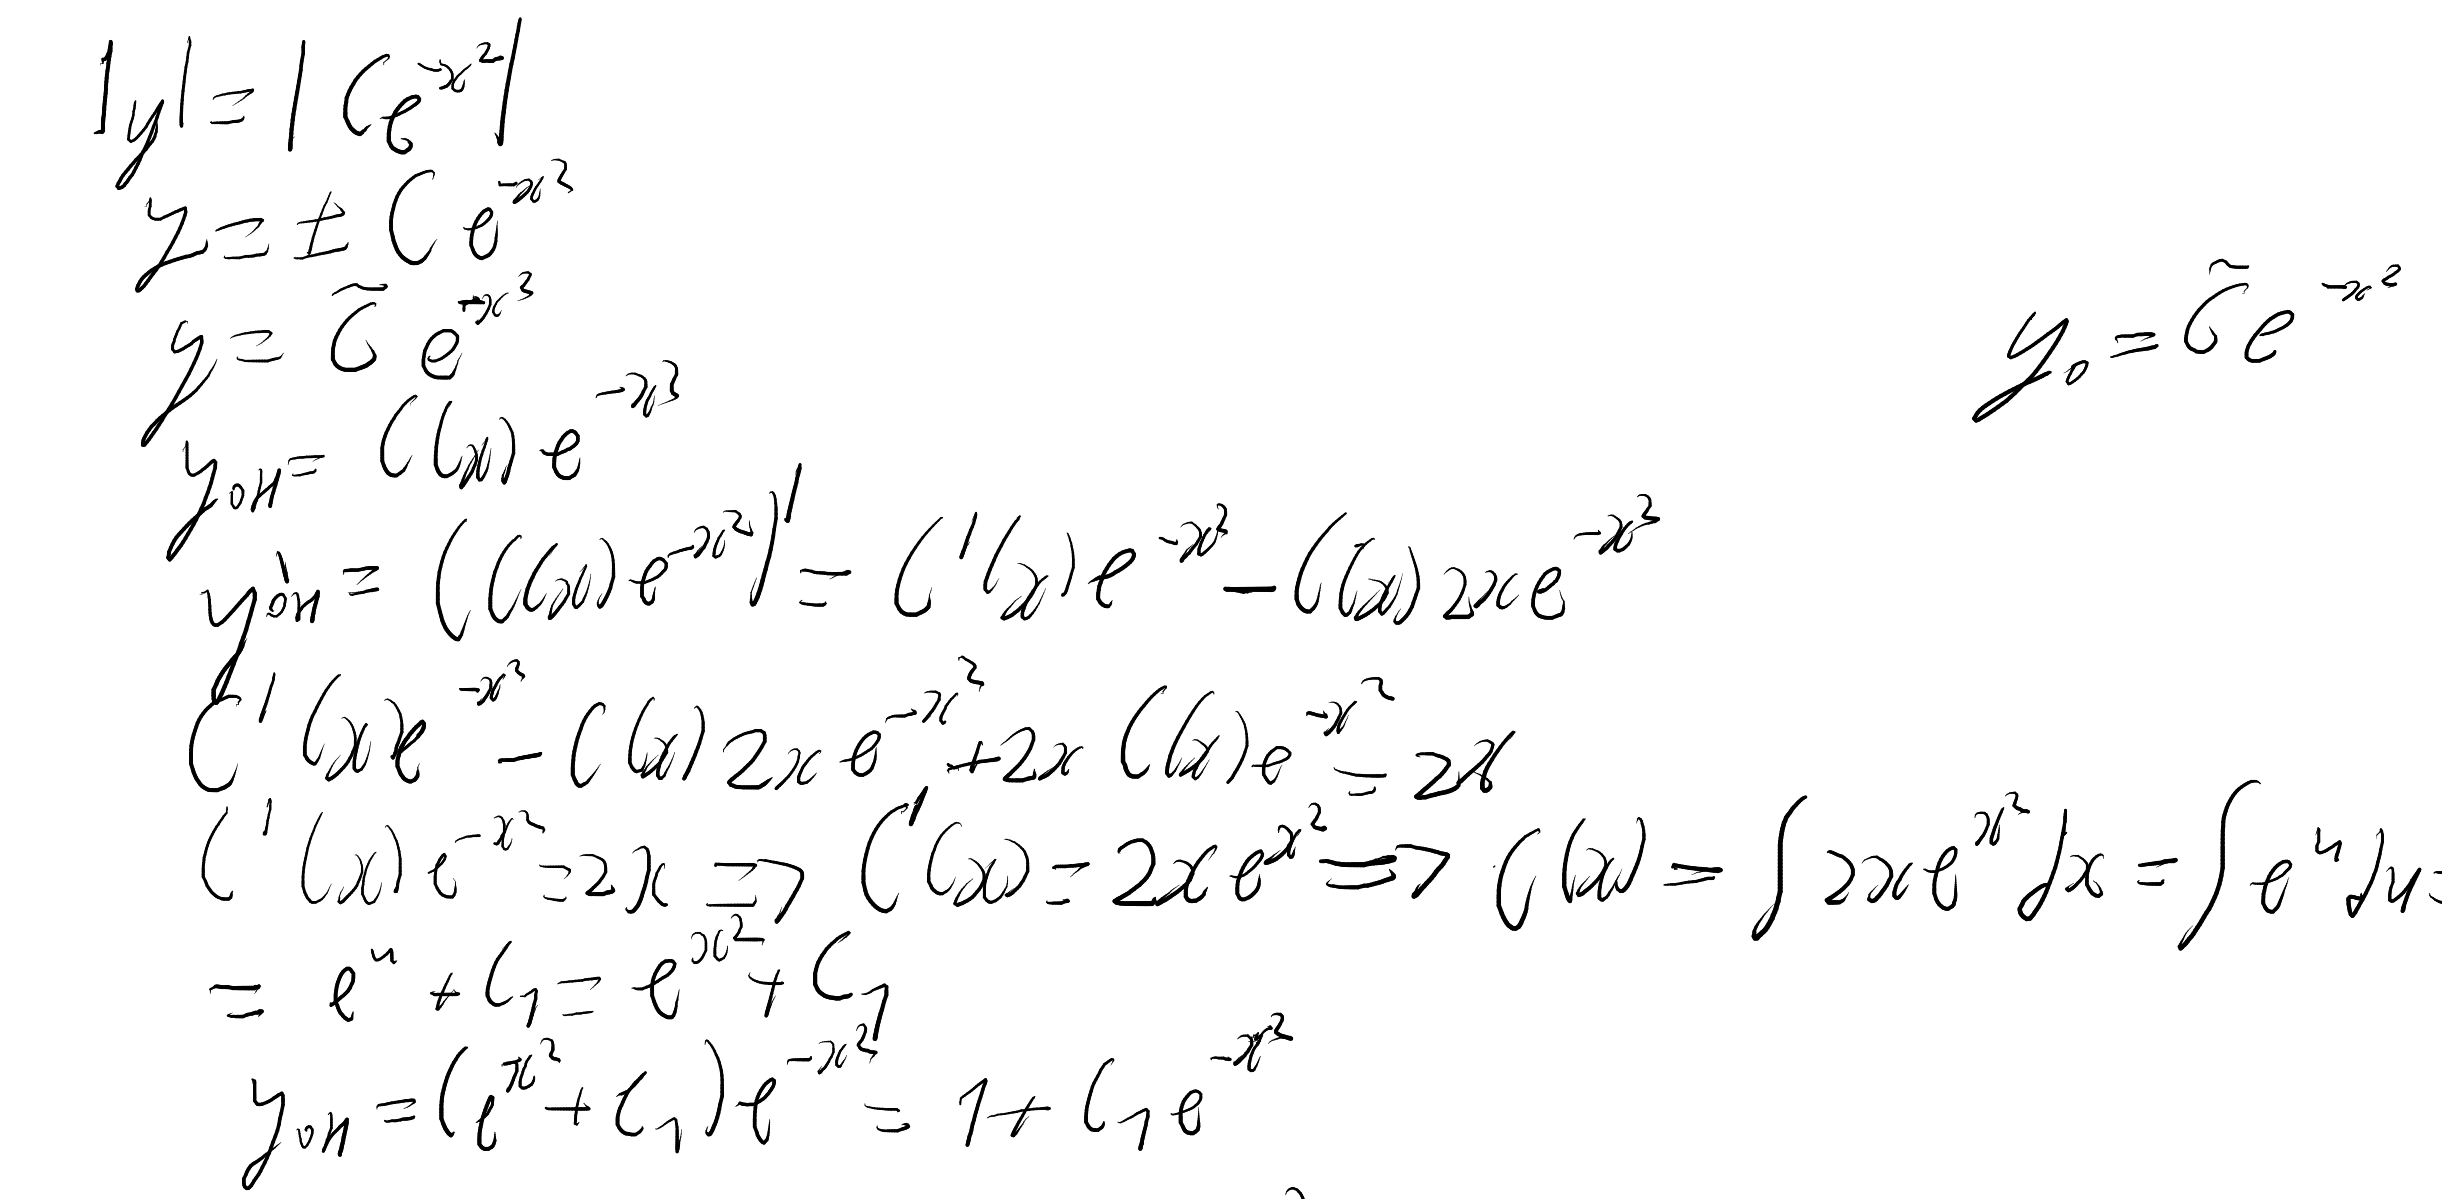 |y| = |Ce^{-x^2}|
y = ± C e^{-x^2}
y = C̃ e^{-x^2}
y₀ = C̃ e^{-x^2}
y_{он} = C(x) e^{-x^2}
y'_{он} = (C(x) e^{-x^2})' = C'(x) e^{-x^2} - C(x) 2x e^{-x^2}
C'(x) e^{-x^2} - C(x) 2x e^{-x^2} + 2x C(x) e^{-x^2} = 2x
C'(x) e^{-x^2} = 2x => C'(x) = 2x e^{x^2} => C(x) = ∫ 2x e^{x^2} dx = ∫ e^u du =
= e^u + C₁ = e^{x^2} + C₁
y_{он} = (e^{x^2} + C₁) e^{-x^2} = 1 + C₁ e^{-x^2}